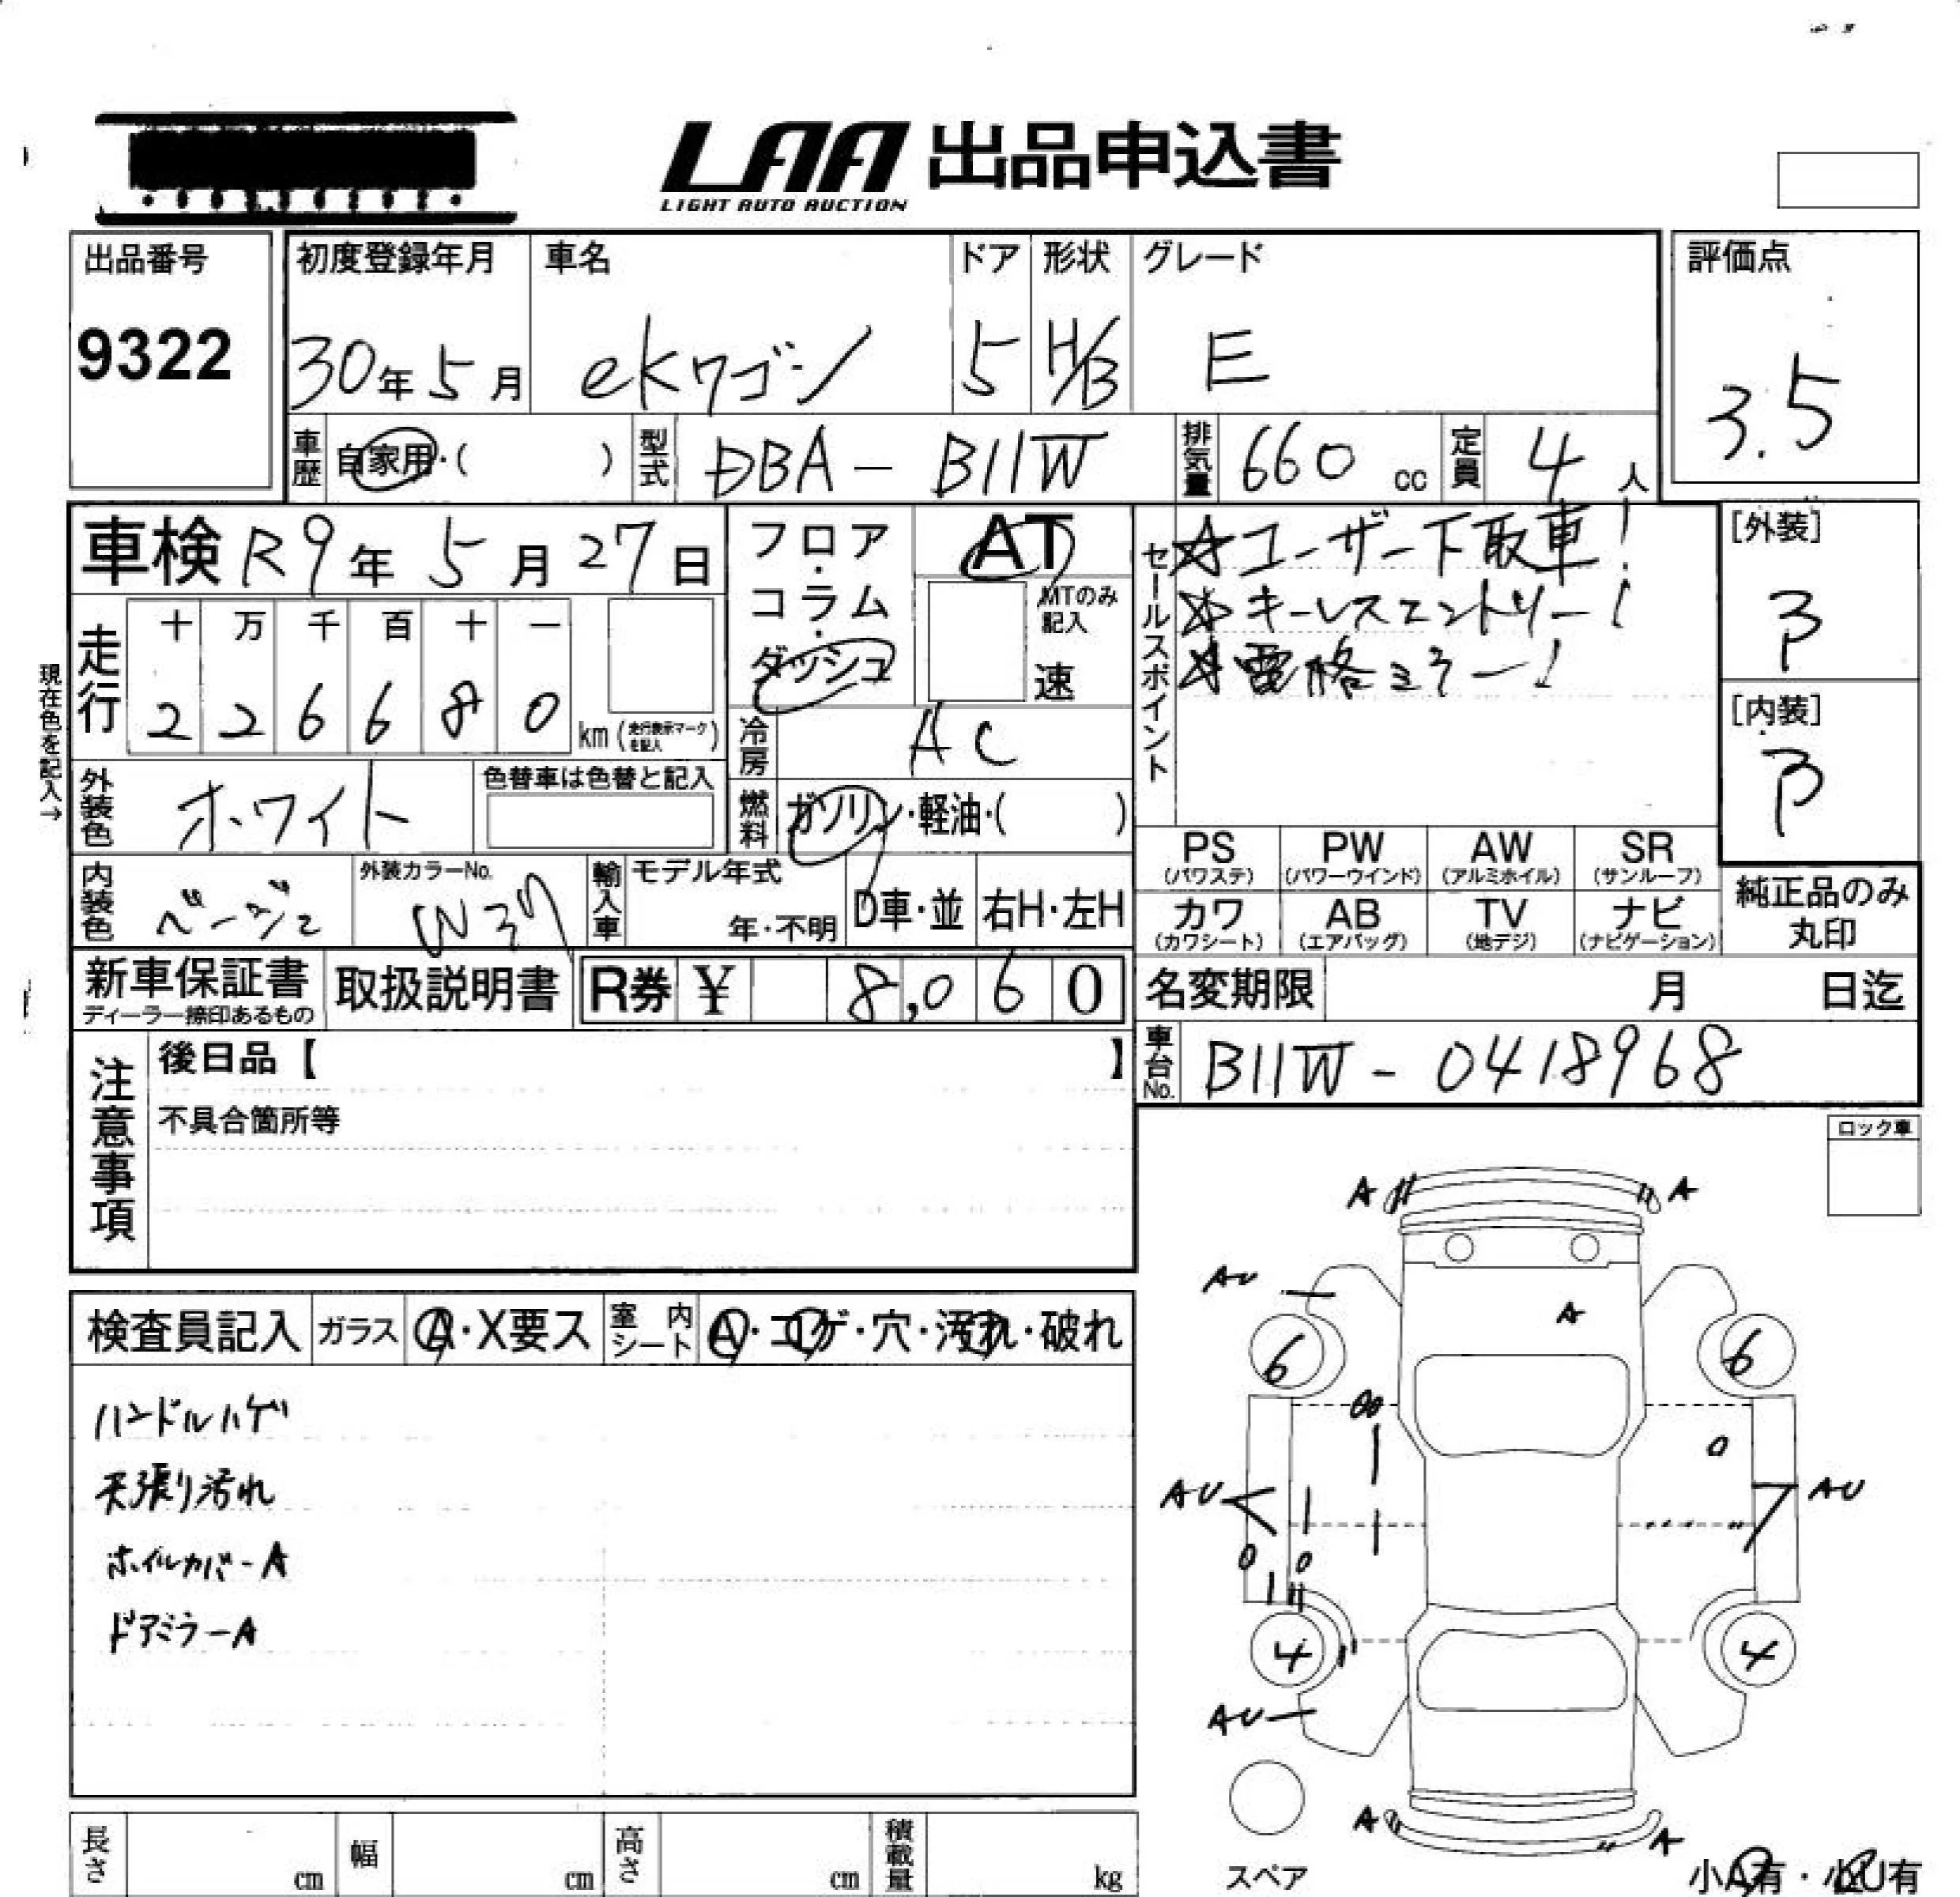 LAA 出品申込書
LIGHT AUTO AUCTION
出品番号
9322
初度登録年月
30年5月
車名
ekワゴン
ドア
5
形状
H/B
グレード
E
評価点
3.5
車歴 自家用・( )
型式 DBA-B11W
排気量 660 cc
定員 4 人
車検 R9年5月27日
フロア・コラム・ダッシュ
AT
MTのみ記入
速
セールスポイント
☆ユーザー下取車!
☆キーレスエントリー!
☆電格ミラー!
[外装]
B
[内装]
B
現在色を記入→
走行
十 万 千 百 十 一
2 2 6 6 8 0
km(走行表示マークを記入)
冷房 AC
外装色 ホワイト
色替車は色替と記入
燃料 ガソリン・軽油・( )
内装色 ベージュ
外装カラーNo.
W37
輸入車 モデル年式
年・不明
D車・並
右H・左H
PS (パワステ)
PW (パワーウインド)
AW (アルミホイル)
SR (サンルーフ)
カワ (カワシート)
AB (エアバッグ)
TV (地デジ)
ナビ (ナビゲーション)
純正品のみ丸印
新車保証書
ディーラー捺印あるもの
取扱説明書
R券 ¥ 8,060
名変期限 月 日迄
車台No. B11W-0418968
注意事項
後日品【 】
不具合箇所等
ロック車
検査員記入
ガラス A・X要ス
室内シート A・コゲ・穴・汚れ・破れ
ハンドルハゲ
天張り汚れ
ホイルカバーA
ドアミラーA
A A
AU
A
6 6
AU AU
4 4
AU
A A
スペア
小A有・小U有
長さ cm
幅 cm
高さ cm
積載量 kg